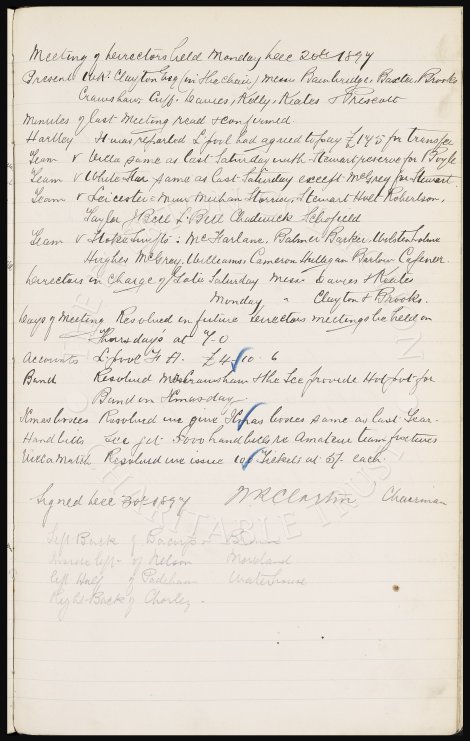 Meeting of Directors held Monday Dec 20th 1897
Present W.R. Clayton Esq (in the chair) Messrs Bainbridge, Baxter, Brooks
Crawshaw Cuff, Davies, Kelly, Keates & Prescott
Minutes of last Meeting read & confirmed
Hartley It was reported L'pool had agreed to pay £175 for transfer
Team v Villa same as last Saturday with Stewart reserve for Boyle
Team v White Star same as last Saturday except McGrey for Stewart
Team v Leicester = Muir Meehan Storrier, Stewart Holt Robertson,
Taylor J Bell L. Bell Chadwick Schofield
Team v Stoke Swifts = McFarlane, Balmer Barker, Wolstenholme
Hughes McGrey, Williams Cameron Barlow
Directors in Charge of Gate Saturday Messrs Davies & Keates
Monday " Clayton & Brooks.
Days of Meeting Resolved in future Directors meetings be held on
Thursdays at 7-0
Accounts L'pool F. A. £4-10-6
Band Resolved Mr Crawshaw & the Sec provide Hot pot for
Band on Xmas day.
Xmas boxes Resolved we give Xmas boxes same as last Year.
Hand bills Sec get 5000 hand bills re Amateur team fixtures
Villa Match Resolved we issue 100 Tickets at 5/- each.
Signed Dec 30th 1897 W R Clayton Chairman
Left Back of Bacup
Inside left of Nelson Moreland
Left Half of Padiham Waterhouse
Right Back of Chorley -
CHARITABLE TRUST